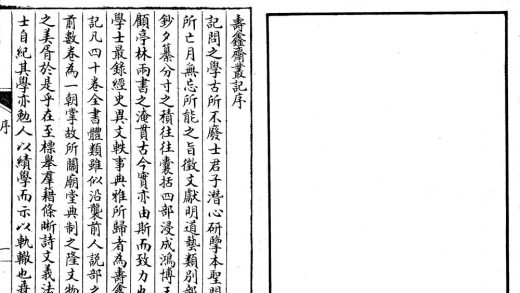 壽鑫齋叢記序
記問之學古所不廢士君子潛心研擘本聖門
所亡月無忘所能之旨徵文獻明道藝類別部
鈔夕纂分寸之積往往囊括四部浸成鴻博王
顧亭林兩書之淹貫古今實亦由斯而致力也
學士最錄經史異文軼事典雅所歸者為壽鑫
記凡四十卷全書體類雖似沿襲前人說部之
前數卷為一朝掌故所關廟堂典制之隆文物
之美胥於是乎在至標舉羣籍條晰詩文義法
士自紀其學亦勉人以績學而示以軌轍也
序
一